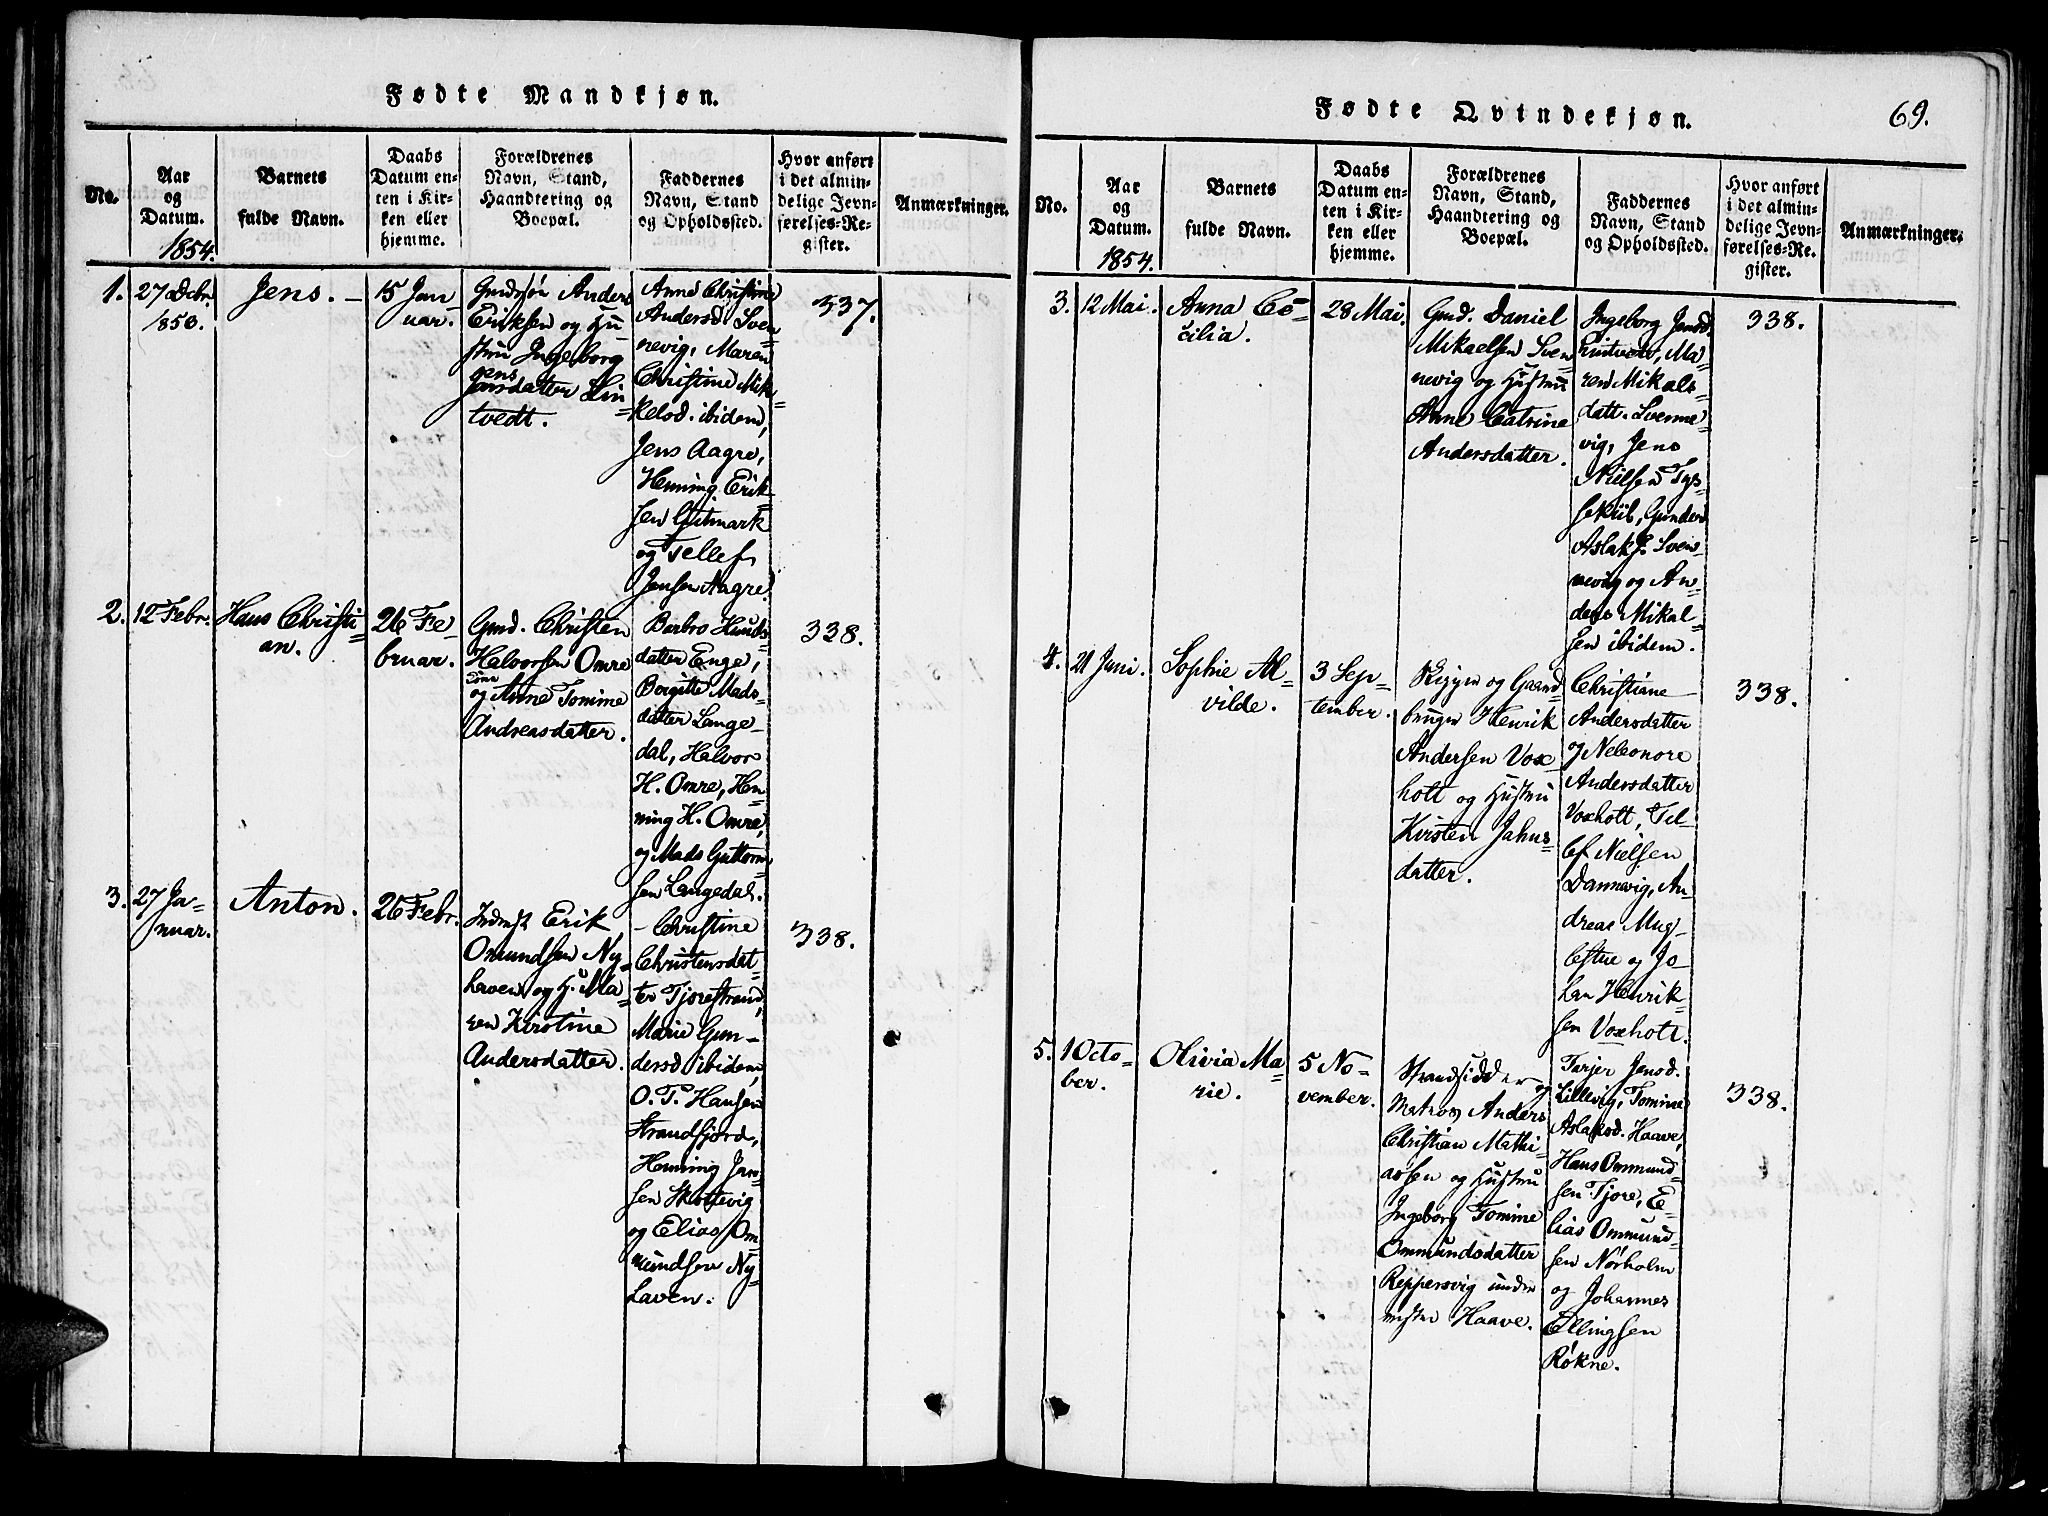 Fødte Mandkjøn.
No.
Aar
og
Datum.
1854.
Barnets
fulde Navn.
Daabs
Datum en-
ten i Kir-
ken eller
hjemme.
Forældrenes
Navn, Stand,
Haandtering og
Boepæl.
Faddernes
Navn, Stand
og Opholdssted.
Hvor anført
i det almin-
delige Jevn-
førelses-Re-
gister.
Anmærkninger.
1.
27 Dcbr.
1853.
Jens. —
15 Jan
uar.
Gmdssøn Anders
Eriksen og Hu-
stru Ingeborg
Jens
datter Lin=
tvedt.
Anne Christine
Andersd. Sven=
nevig, Maren
Christine Mik=
kelsd. ibidem,
Jens Aagre,
Henning Erik-
sen Gitmark
og Tellef
Jensen Aagre.
337.
2.
12 Febr.
Hans Christi
an.
26 Fe-
bruar.
Gmd. Christen
Halvorsen Omre
og Anne Tomine
Andreasdatter.
Barbro Knuds=
datter Enge,
Borgitte Mads=
datter Lange=
dal, Halvor
H. Omre, Hen=
ning H. Omre,
og Mads Guttorm
sen Langedal.
338.
3.
27 Ja=
nuar.
Anton.
26 Febr.
Inderst Erik
Omundsen Ny=
haven og H. Ma=
ren Kirstine
Andersdatter.
- Christine
Christensdat=
ter Tjorestrand,
Marie Gun-
dersd ibidem,
O. T. Hansen
Strandfjord,
Henning Jan=
sen Skottevig
og Elias Om=
mundsen Ny=
haven.
338.
Fødte Qvindekjøn.
69.
No.
Aar
og
Datum.
1854.
Barnets
fulde Navn.
Daabs
Datum en-
ten i Kir-
ken eller
hjemme.
Forældrenes
Navn, Stand,
Haandtering og
Boepæl.
Faddernes
Navn, Stand
og Opholdssted.
Hvor anført
i det almin-
delige Jevn-
førelses-Re-
gister.
Anmærkninger.
3.
12 Mai.
Anna Ce-
cilia.
28 Mai.
Gmd. Daniel
Mikaelsen Sven=
nevig og Hustru
Anne Catrine
Andersdatter.
Ingeborg Jensd.
Lintvedt, Ma=
ren Mikals=
datt. Svenne=
vig, Jens
Nielsen Tys=
sekiil, Gunder
Aslaks. Sven=
nevig og An=
ders Mikal=
sen ibidem.
338.
4.
21 Juni.
Sophie Al=
vilde.
3 Sep=
tember.
Skipper og Gaard=
bruger Henrik
Andersen Vox=
holt og Hustru
Kirsten Jahns=
datter.
Christiane
Andersdatter
og Neleonore
Andersdatter
Voxholt, Tel=
lef Nielsen
Dannevig, An=
dreas Mug=
lestue og Jo=
han Henrik=
sen Voxholt.
338.
5.
1 Octo=
ber.
Olivia Ma=
rie.
5 No-
vember.
Strandsidder og
Matros Anders
Christian Mathi=
assen og Hustru
Ingeborg Tomine
Ommundsdatter
Reppersvig under
Haave.
Tarjer Jensd.
Lillevig, Tomine
Aslaksd. Haave,
Hans Ommund=
sen Tjore, E=
lias Ommund=
sen Nørholm
og Johannes
Ellingsen
Røkne.
338.